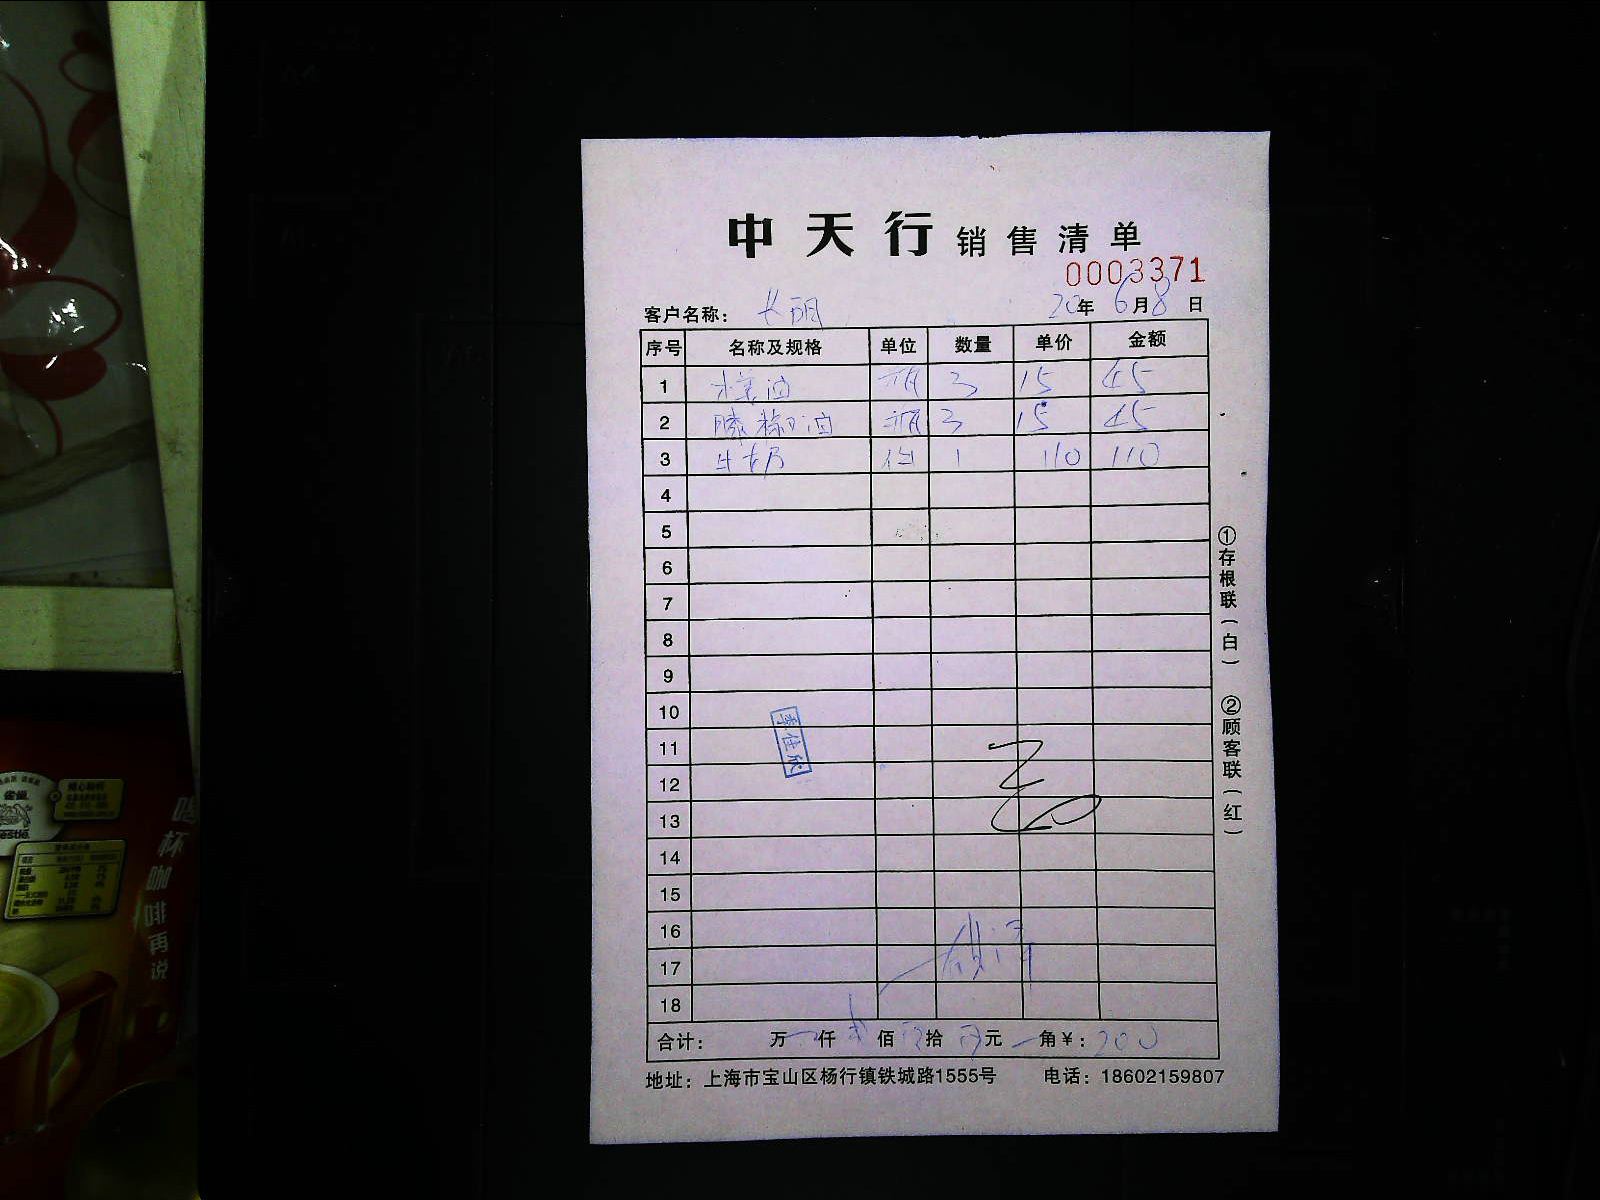 中天行 销售清单
0003371
客户名称: 20年 6月8日
序号 名称及规格 单位 数量 单价 金额
1 油 瓶 3 15 45
2 油 瓶 3 15 45
3 1 110 110
4
5
6
7
8
9
10
11
12
13
14
15
16
17
18
合计: 万 仟 佰 拾 元 角¥: 200
地址: 上海市宝山区杨行镇铁城路1555号 电话: 18602159807
①存根联(白) ②顾客联(红)
李佳欣
雀巢
喝杯咖啡再说